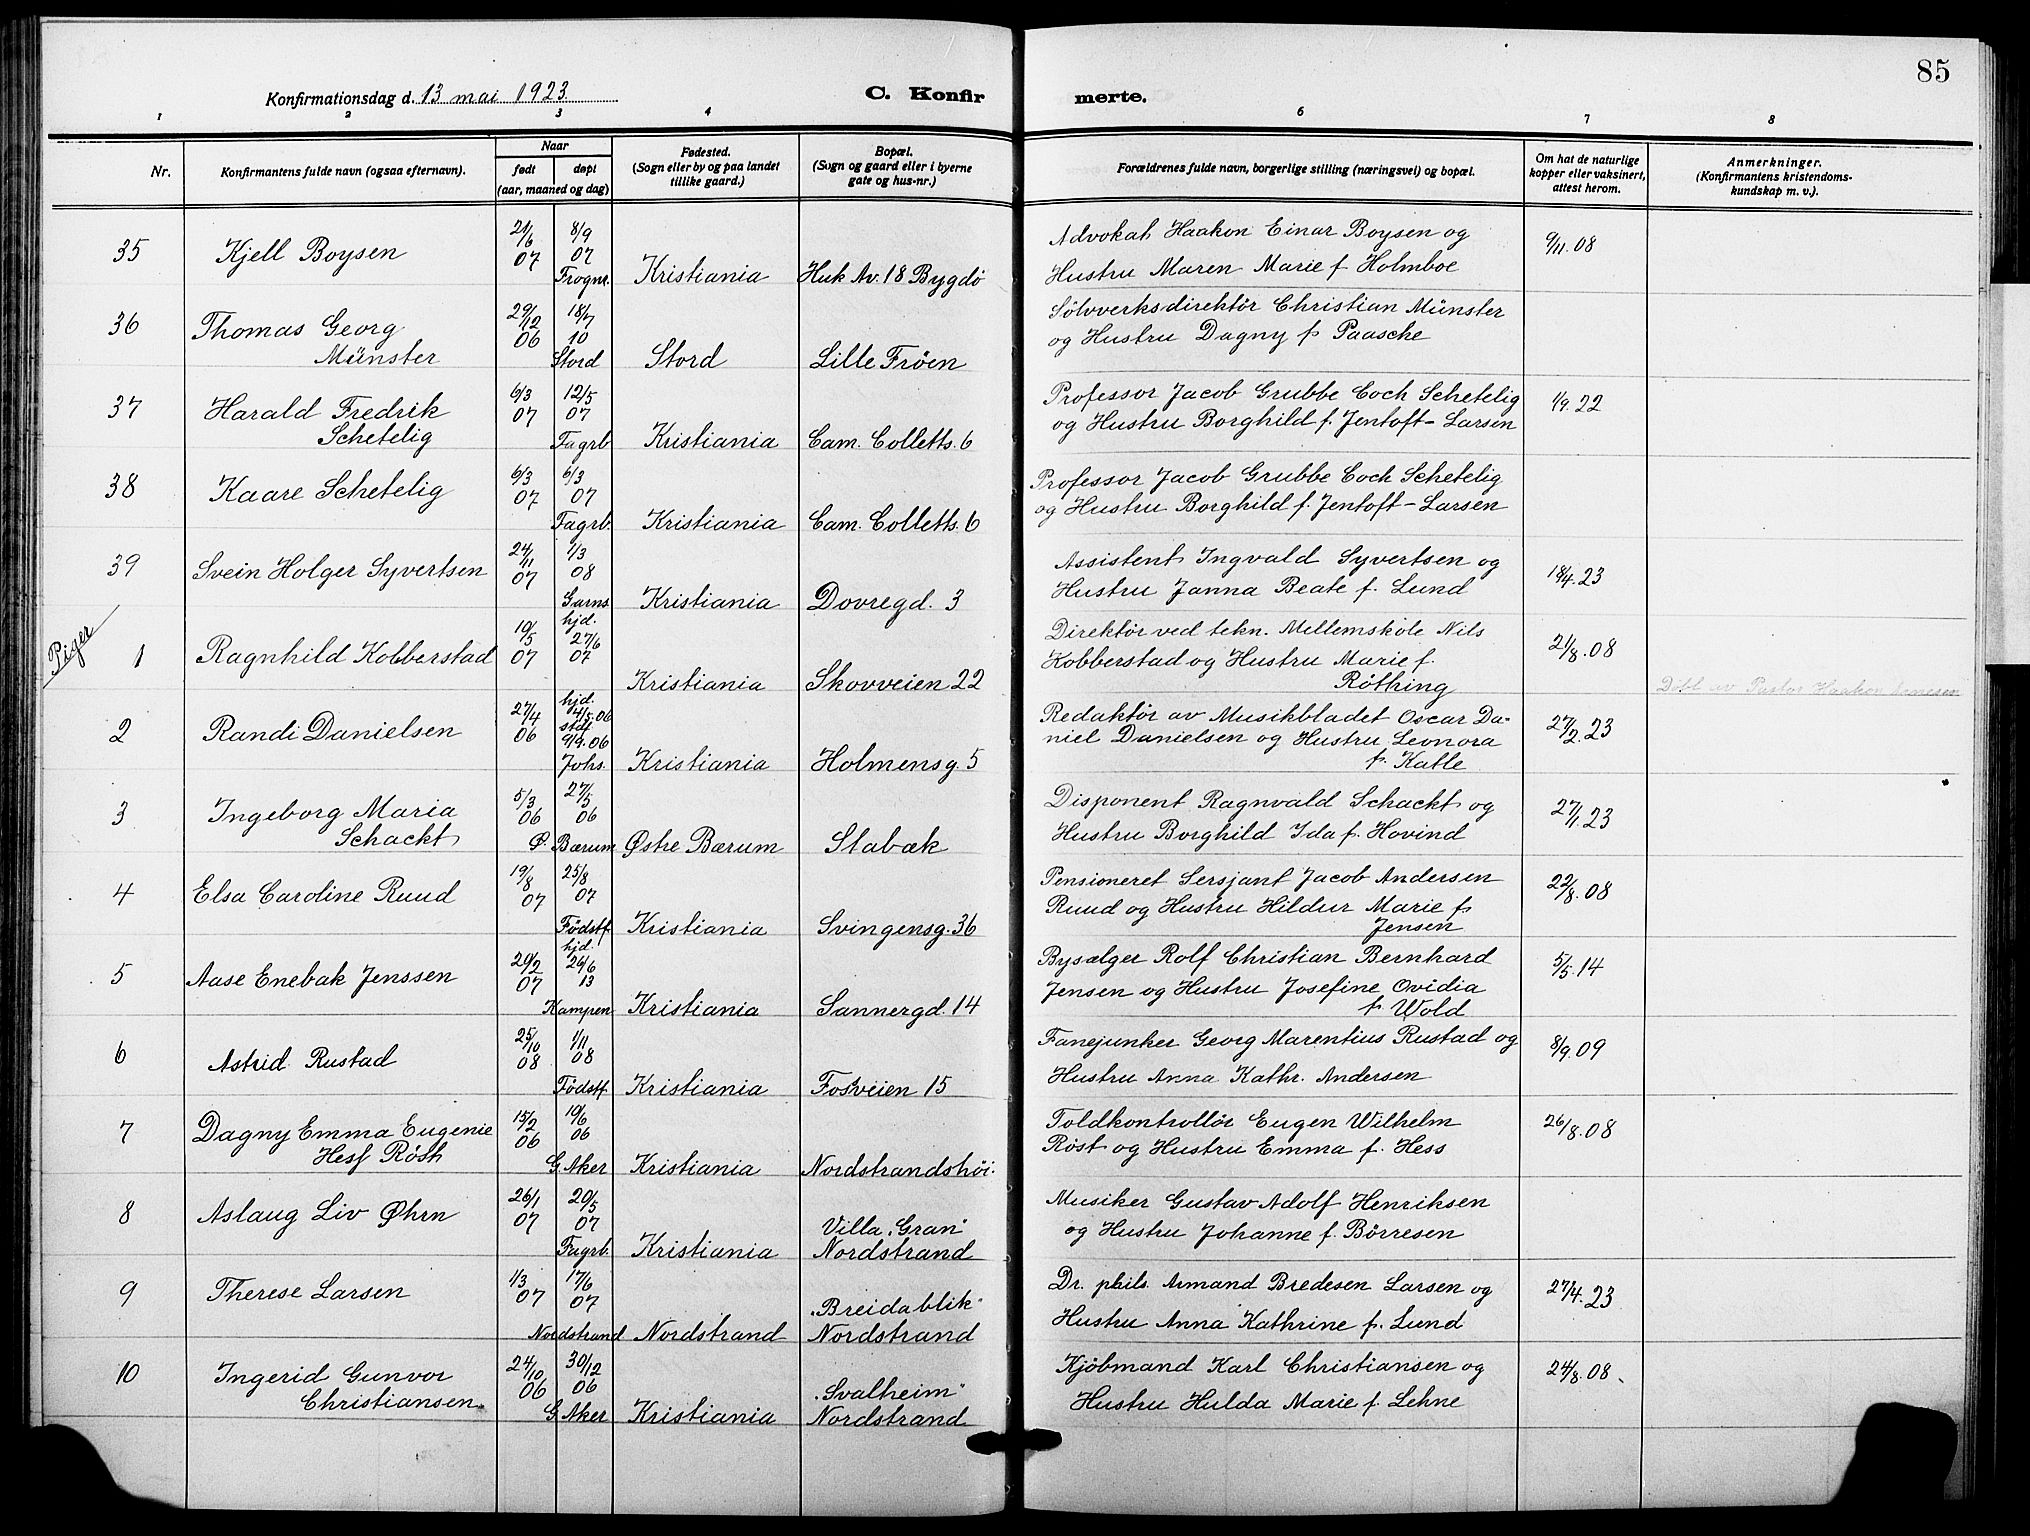 85
Konfirmationsdag d. 13 mai 1923
C. Konfir
merte.
1 2 3 4 5 6 7 8
Nr.
Konfirmantens fulde navn (ogsaa efternavn).
Naar
født døpt
(aar, maaned og dag)
Fødested.
(Sogn eller by og paa landet
tillike gaard.)
Bopæl.
(Sogn og gaard eller i byerne
gate og hus-nr.)
Forældrenes fulde navn, borgerlige stilling (næringsvei) og bopæl.
Om hat de naturlige
kopper eller vaksinert,
attest herom.
Anmerkninger.
(Konfirmantens kristendoms-
kundskap m. v.).
35 Kjell Boysen 21/6 07 8/9 07 Frogner. Kristiania Huk Av. 18 Bygdö
Advokat Haakon Einar Boysen og
Hustru Maren Marie f Holmboe
9/11. 08
36 Thomas Georg
Münster 29/12 06 18/7 10 Stord Stord Lille Fröen
Sölvverksdirektör Christian Münster
og Hustru Dagny f. Paasche
37 Harald Fredrik
Schetelig 6/3 07 12/5 07 Fagrb. Kristiania Cam. Colletts. 6
Professor Jacob Grubbe Coch Schetelig
og Hustru Borghild f. Jentoft-Larsen
1/9. 22
38 Kaare Schetelig 6/3 07 6/3 07 Fagrb. Kristiania Cam. Colletts. 6
Professor Jacob Grubbe Coch Schetelig
og Hustru Borghild f. Jentoft-Larsen
39 Svein Holger Syvertsen 24/11 07 1/3 08 Garns. Kristiania Dovregd. 3
Assistent Ingvald Syvertsen og
Hustru Janna Beate f. Lund
18/4. 23
Piger
1 Ragnhild Kobberstad 19/5 07 hjd. 27/6 07 Kristiania Skovveien 22
Direktör ved tekn. Mellemskole Nils
Kobberstad og Hustru Marie f.
Röthing
21/8. 08
Döbt av Pastor Haakon Arnesen
2 Randi Danielsen 27/4 06 hjd. 4/5. 06 stdf 9/9. 06 Johs. Kristiania Holmensg. 5
Redaktör av Musikbladet Oscar Da-
niel Danielsen og Hustru Leonora
f. Katle
27/2. 23
3 Ingeborg Maria
Schackt 5/3 06 27/5 06 Ø. Bærum Østre Bærum Stabæk
Disponent Ragnvald Schackt og
Hustru Borghild Ida f. Hovind
27/1. 23
4 Elsa Caroline Ruud 19/8 07 25/8 07 Födstf. Kristiania Svingensg. 36
Pensioneret Sersjant Jacob Andersen
Ruud og Hustru Hildur Marie f.
Jensen
22/8. 08
5 Aase Enebak Jenssen 20/2 07 hjd. 26/6 13 Kampen Kristiania Sannergd. 14
Bysælger Rolf Christian Bernhard
Jensen og Hustru Josefine Ovidia
f. Wold
5/5. 14
6 Astrid Rustad 25/10 08 1/11 08 Födstf. Kristiania Fosveien 15
Fanejunker Georg Marentius Rustad og
Hustru Anna Kathr. Andersen
8/9. 09
7 Dagny Emma Eugenie
Hess Röst 15/2 06 10/6 06 G. Aker Kristiania Nordstrandshöi.
Toldkontrollör Eugen Wilhelm
Röst og Hustru Emma f. Hess
26/8. 08
8 Aslaug Liv Øhrn 26/1 07 20/5 07 Fagrb. Kristiania Villa „Gran"
Nordstrand
Musiker Gustav Adolf Henriksen
og Hustru Johanne f. Börresen
9 Therese Larsen 1/3 07 17/6 07 Nordstrand Nordstrand „Breidablik"
Nordstrand
Dr. phils. Armand Bredesen Larsen og
Hustru Anna Kathrine f. Lund
27/4. 23
10 Ingerid Gunvor
Christiansen. 24/10 06 30/12 06 G. Aker Kristiania „Svalheim"
Nordstrand
Kjöbmand Karl Christiansen og
Hustru Hulda Marie f. Lehne
24/8. 08